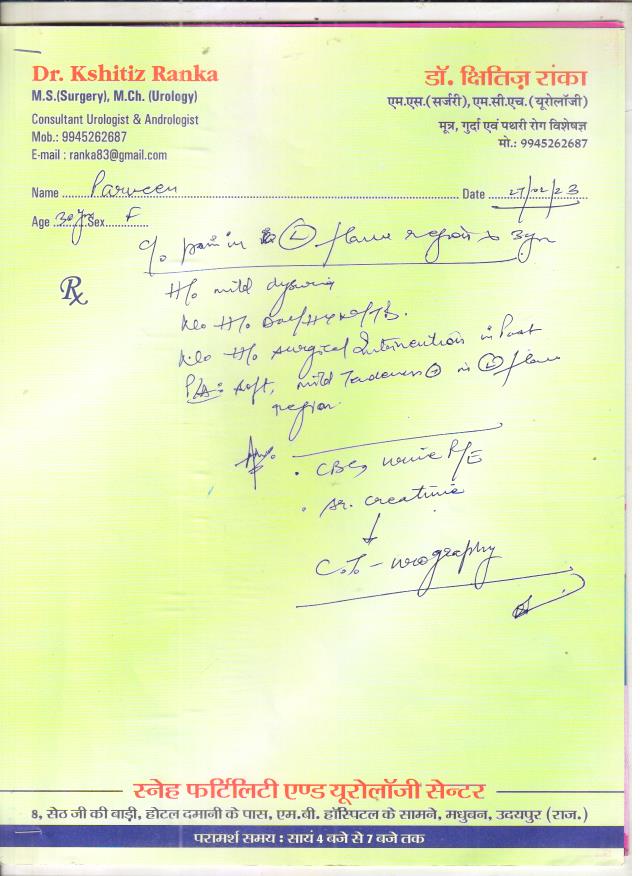 Dr. Kshitiz Ranka
M.S.(Surgery), M.Ch. (Urology)
Consultant Urologist & Andrologist
Mob.: 9945262687
E-mail : ranka83@gmail.com
डॉ. क्षितिज़ रांका
एम.एस.(सर्जरी), एम.सी.एच.(यूरोलॉजी)
मूत्र, गुर्दा एवं पथरी रोग विशेषज्ञ
मो.: 9945262687
Name Parveen Date 27/02/23
Age 30 yrs Sex F
c/o pain in (L) flank region x 3yr
Rx
H/o mild dysuria
No H/o TB.
No H/o surgical Intervention in Past
P/A: soft, mild Tenderness ⊕ in (L) flank
region
Adv.
• CBC, urine R/E
• Sr. creatinine
↓
C.T. - urography
स्नेह फर्टिलिटी एण्ड यूरोलॉजी सेन्टर
8, सेठ जी की बाड़ी, होटल दमानी के पास, एम.बी. हॉस्पिटल के सामने, मधुबन, उदयपुर (राज.)
परामर्श समय : सायं 4 बजे से 7 बजे तक